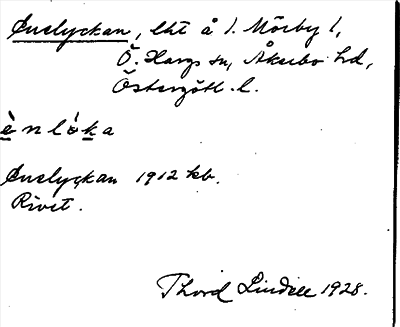 Eneslyckan, lht å 1. Mörby 1,
Ö. Hargs sn, Åkerbo hd,
Östergötl. l.
ènlo̍ka
Eneslyckan 1912 kb.
Rivet.
Thord Lindell 1928.